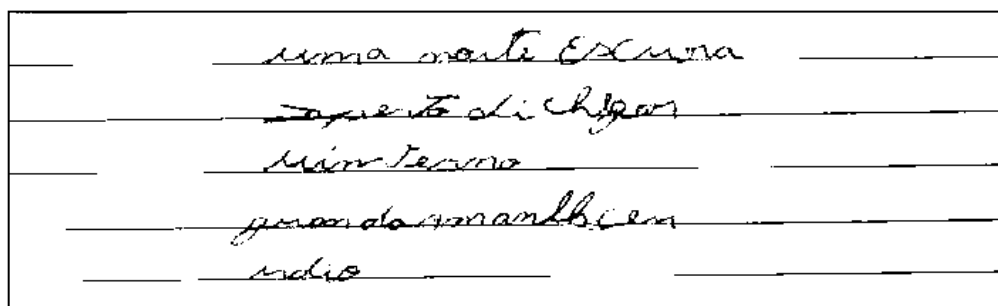 uma noite Escura
perto di chegar
uinverno
quando amanhceu
udio